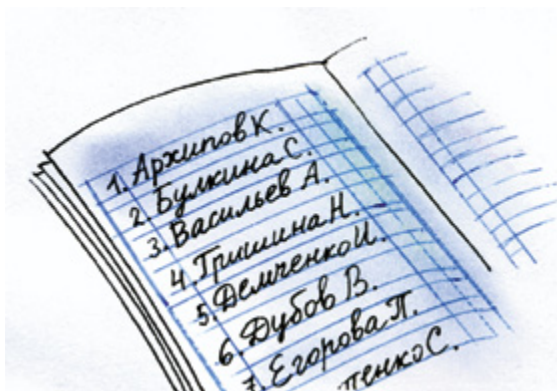 1. Архипов К.
2. Булкина С.
3. Васильев А.
4. Гришина Н.
5. Демченко И.
6. Дубов В.
7. Егорова П.